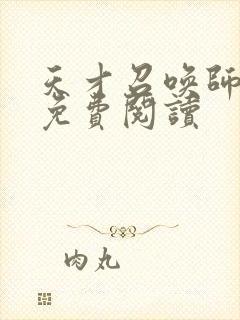 天才召喚師
免費閱讀
肉丸